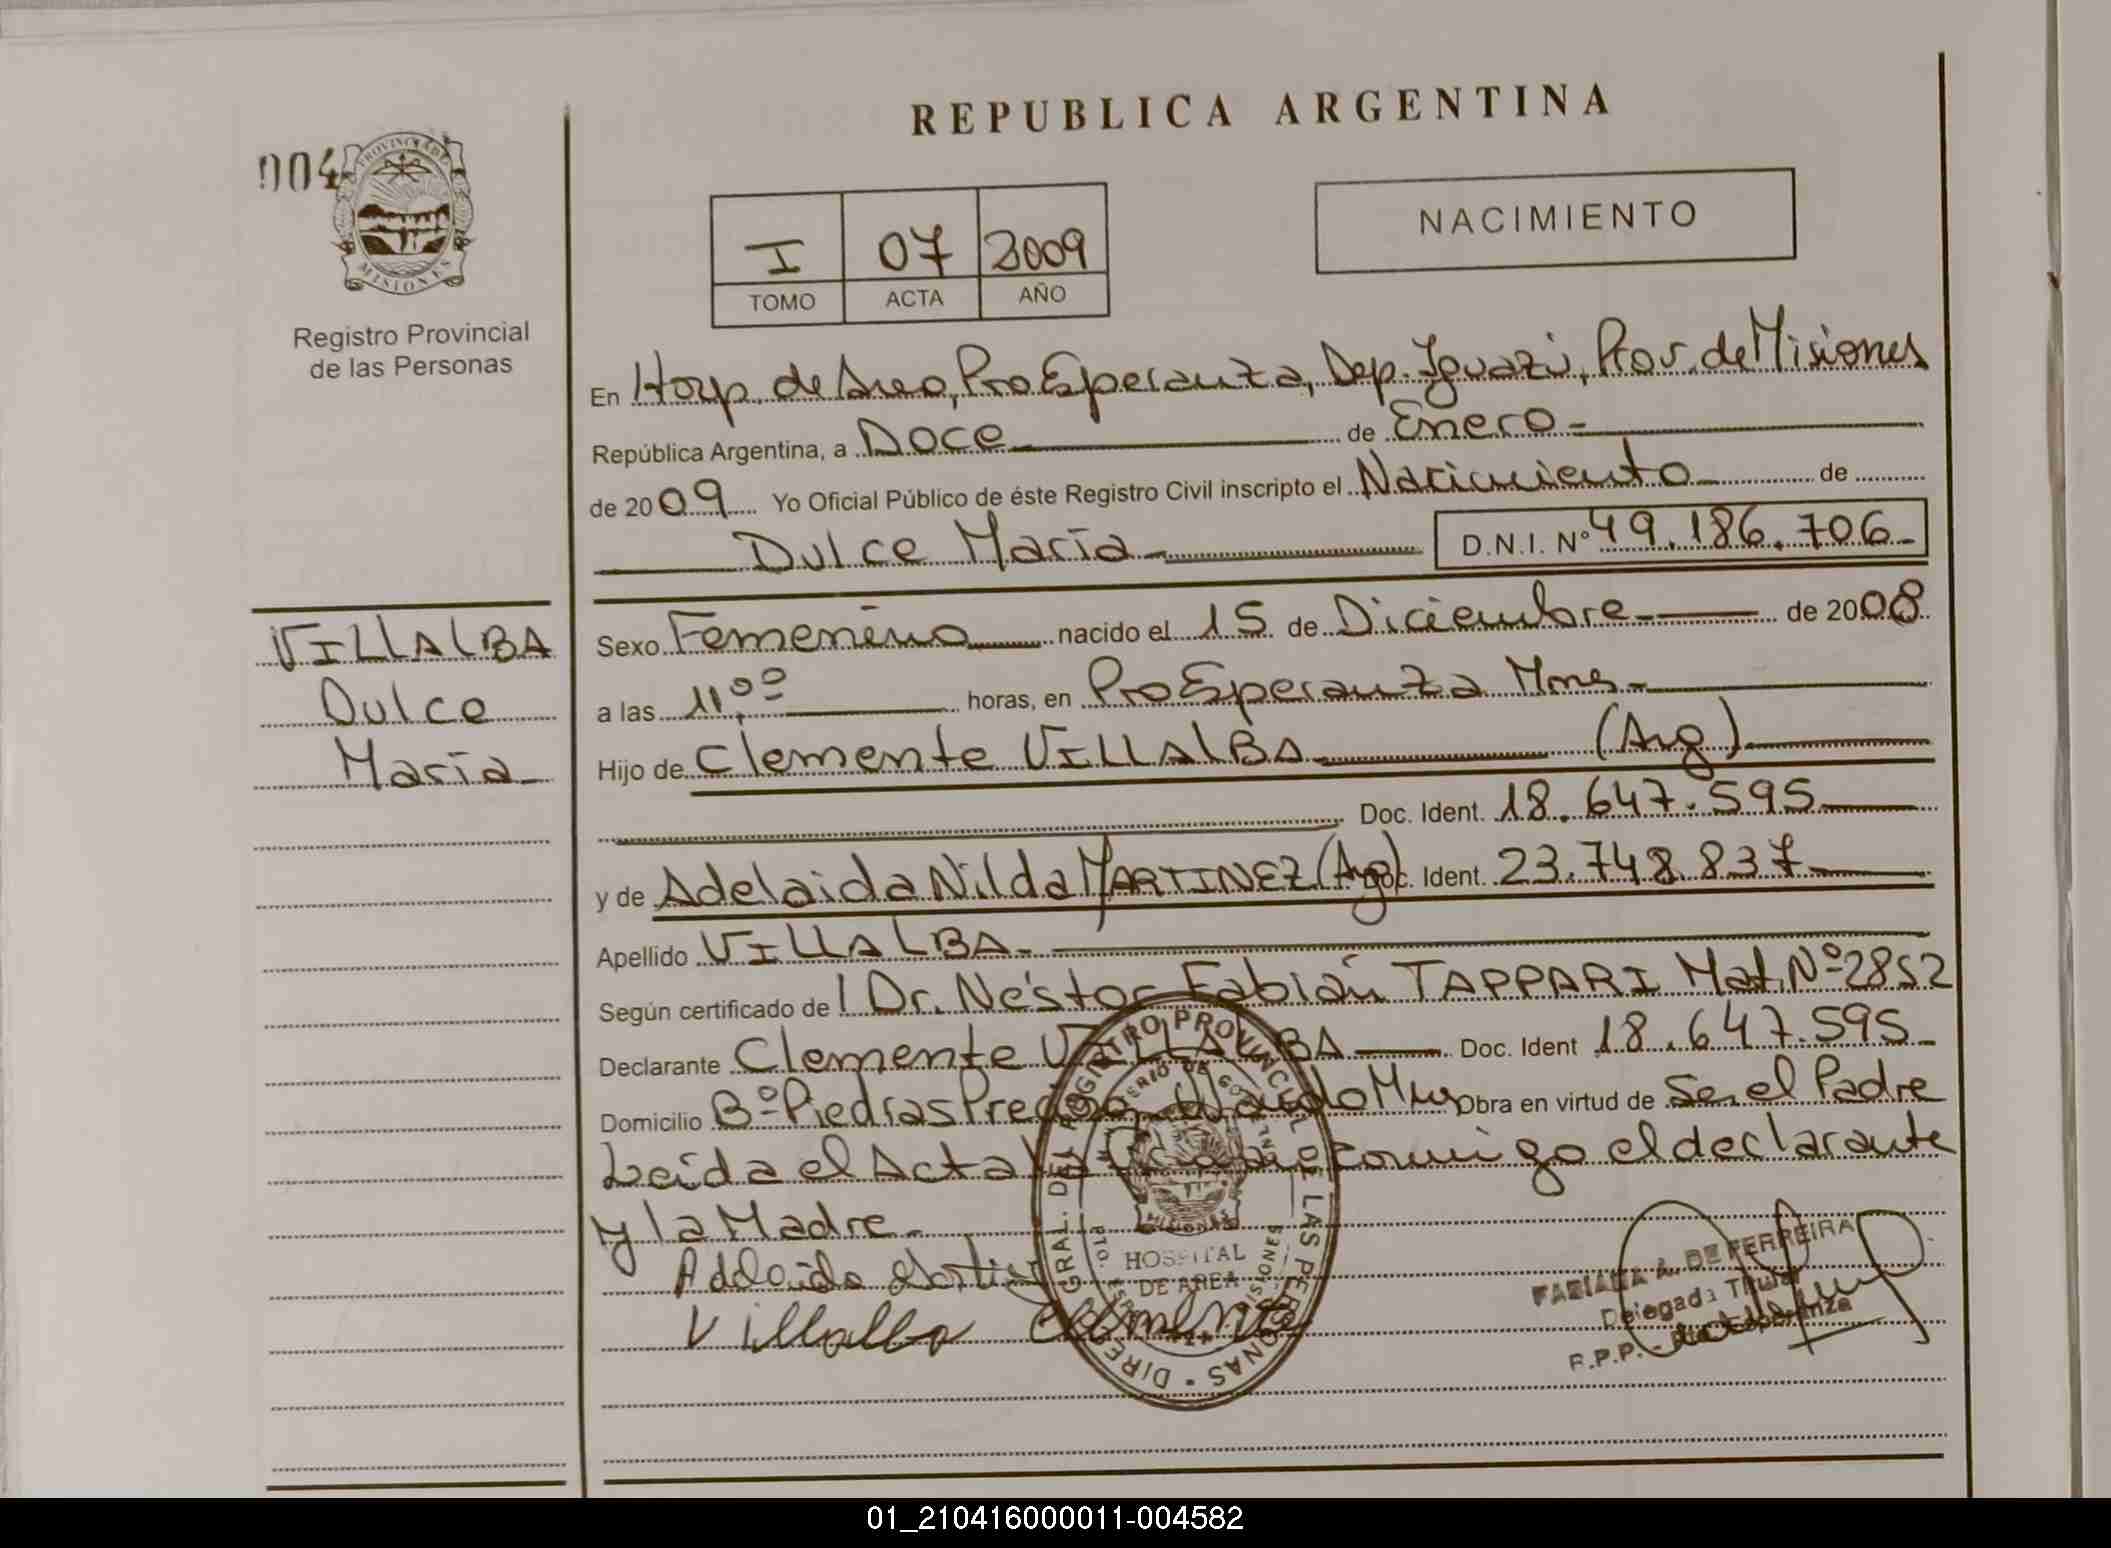 REPUBLICA ARGENTINA
004
PROVINCIA DE
MISIONES
Registro Provincial
de las Personas
I 07 2009
TOMO ACTA AÑO
NACIMIENTO
En Hosp. de Area, Pto Esperanza, Dep. Iguazú, Prov. de Misiones
República Argentina, a Doce de Enero
de 2009 Yo Oficial Público de éste Registro Civil inscripto el Nacimiento de
Dulce María D.N.I. Nº 49.186.706
VILLALBA
Dulce
María
Sexo Femenino nacido el 15 de Diciembre de 2008
a las 11,00 horas, en Pto Esperanza Mnes
Hijo de Clemente VILLALBA (Arg)
Doc. Ident. 18.647.595
y de Adelaida Nilda MARTINEZ (Arg) Doc. Ident. 23.748.837
Apellido VILLALBA
Según certificado de l Dr. Néstor Fabián TAPPARI Mat. Nº 2852
Declarante Clemente VILLALBA Doc. Ident 18.647.595
Domicilio Bº Piedras Wanda Mnes Obra en virtud de Ser el Padre
Leída el Acta conmigo el declarante
y la Madre
Adelaida
Villalba Clemente
DIRE GRAL. DEL REGISTRO PROVINCIAL DE LAS PERSONAS
HOSPITAL
DE AREA
MISIONES
FABIANA A. DE FERREIRA
Delegada Titular
R.P.P. - Pto Esperanza
01_210416000011-004582